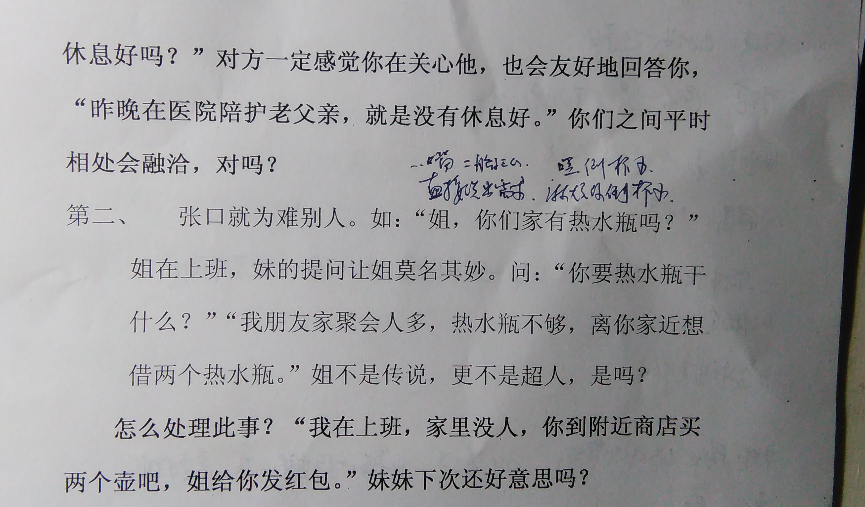 休息好吗？”对方一定感觉你在关心他，也会友好地回答你，
“昨晚在医院陪护老父亲，就是没有休息好。”你们之间平时
相处会融洽，对吗？
倒杯水
直接说出需求. 倒杯水.
第二、 张口就为难别人。如：“姐，你们家有热水瓶吗？”
姐在上班，妹的提问让姐莫名其妙。问：“你要热水瓶干
什么？”“我朋友家聚会人多，热水瓶不够，离你家近想
借两个热水瓶。”姐不是传说，更不是超人，是吗？
怎么处理此事？“我在上班，家里没人，你到附近商店买
两个壶吧，姐给你发红包。”妹妹下次还好意思吗？